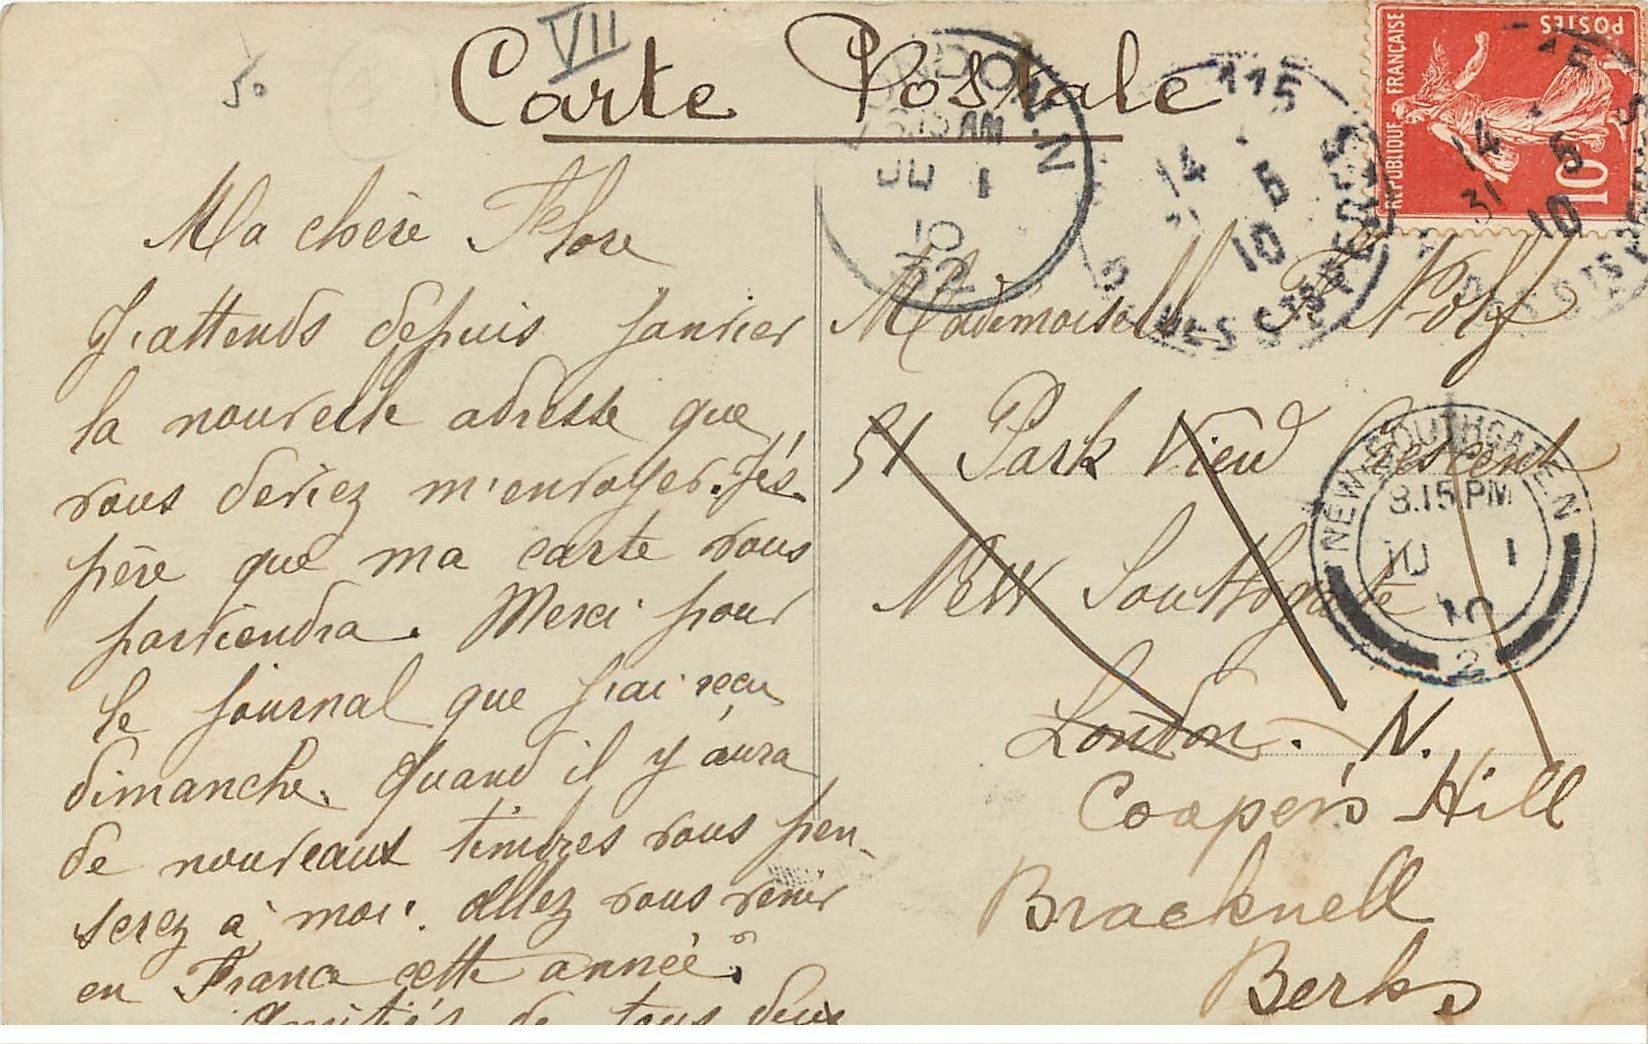 VII
50
Carte Postale
Ma chère Flore
J'attends depuis janvier
la nouvelle adresse que
vous deviez m'envoyer. J'és-
père que ma carte vous
parviendra. Merci pour
le journal que j'ai reçu
dimanche. Quand il y aura
de nouveaux timbres vous pen-
serez à moi. Allez vous venir
en France cette année?
Amitiés de tous deux
REPUBLIQUE FRANÇAISE
POSTES
10
LONDON. N.
AM
JU 1
10
115
14 5
31 10
14 5
31 10
Mademoiselle F.
51 Park View Crescent
New Southgate
London. N.
NEW SOUTHGATE. N
8.15 PM
JU 1
10
2
Cooper's Hill
Bracknell
Berks